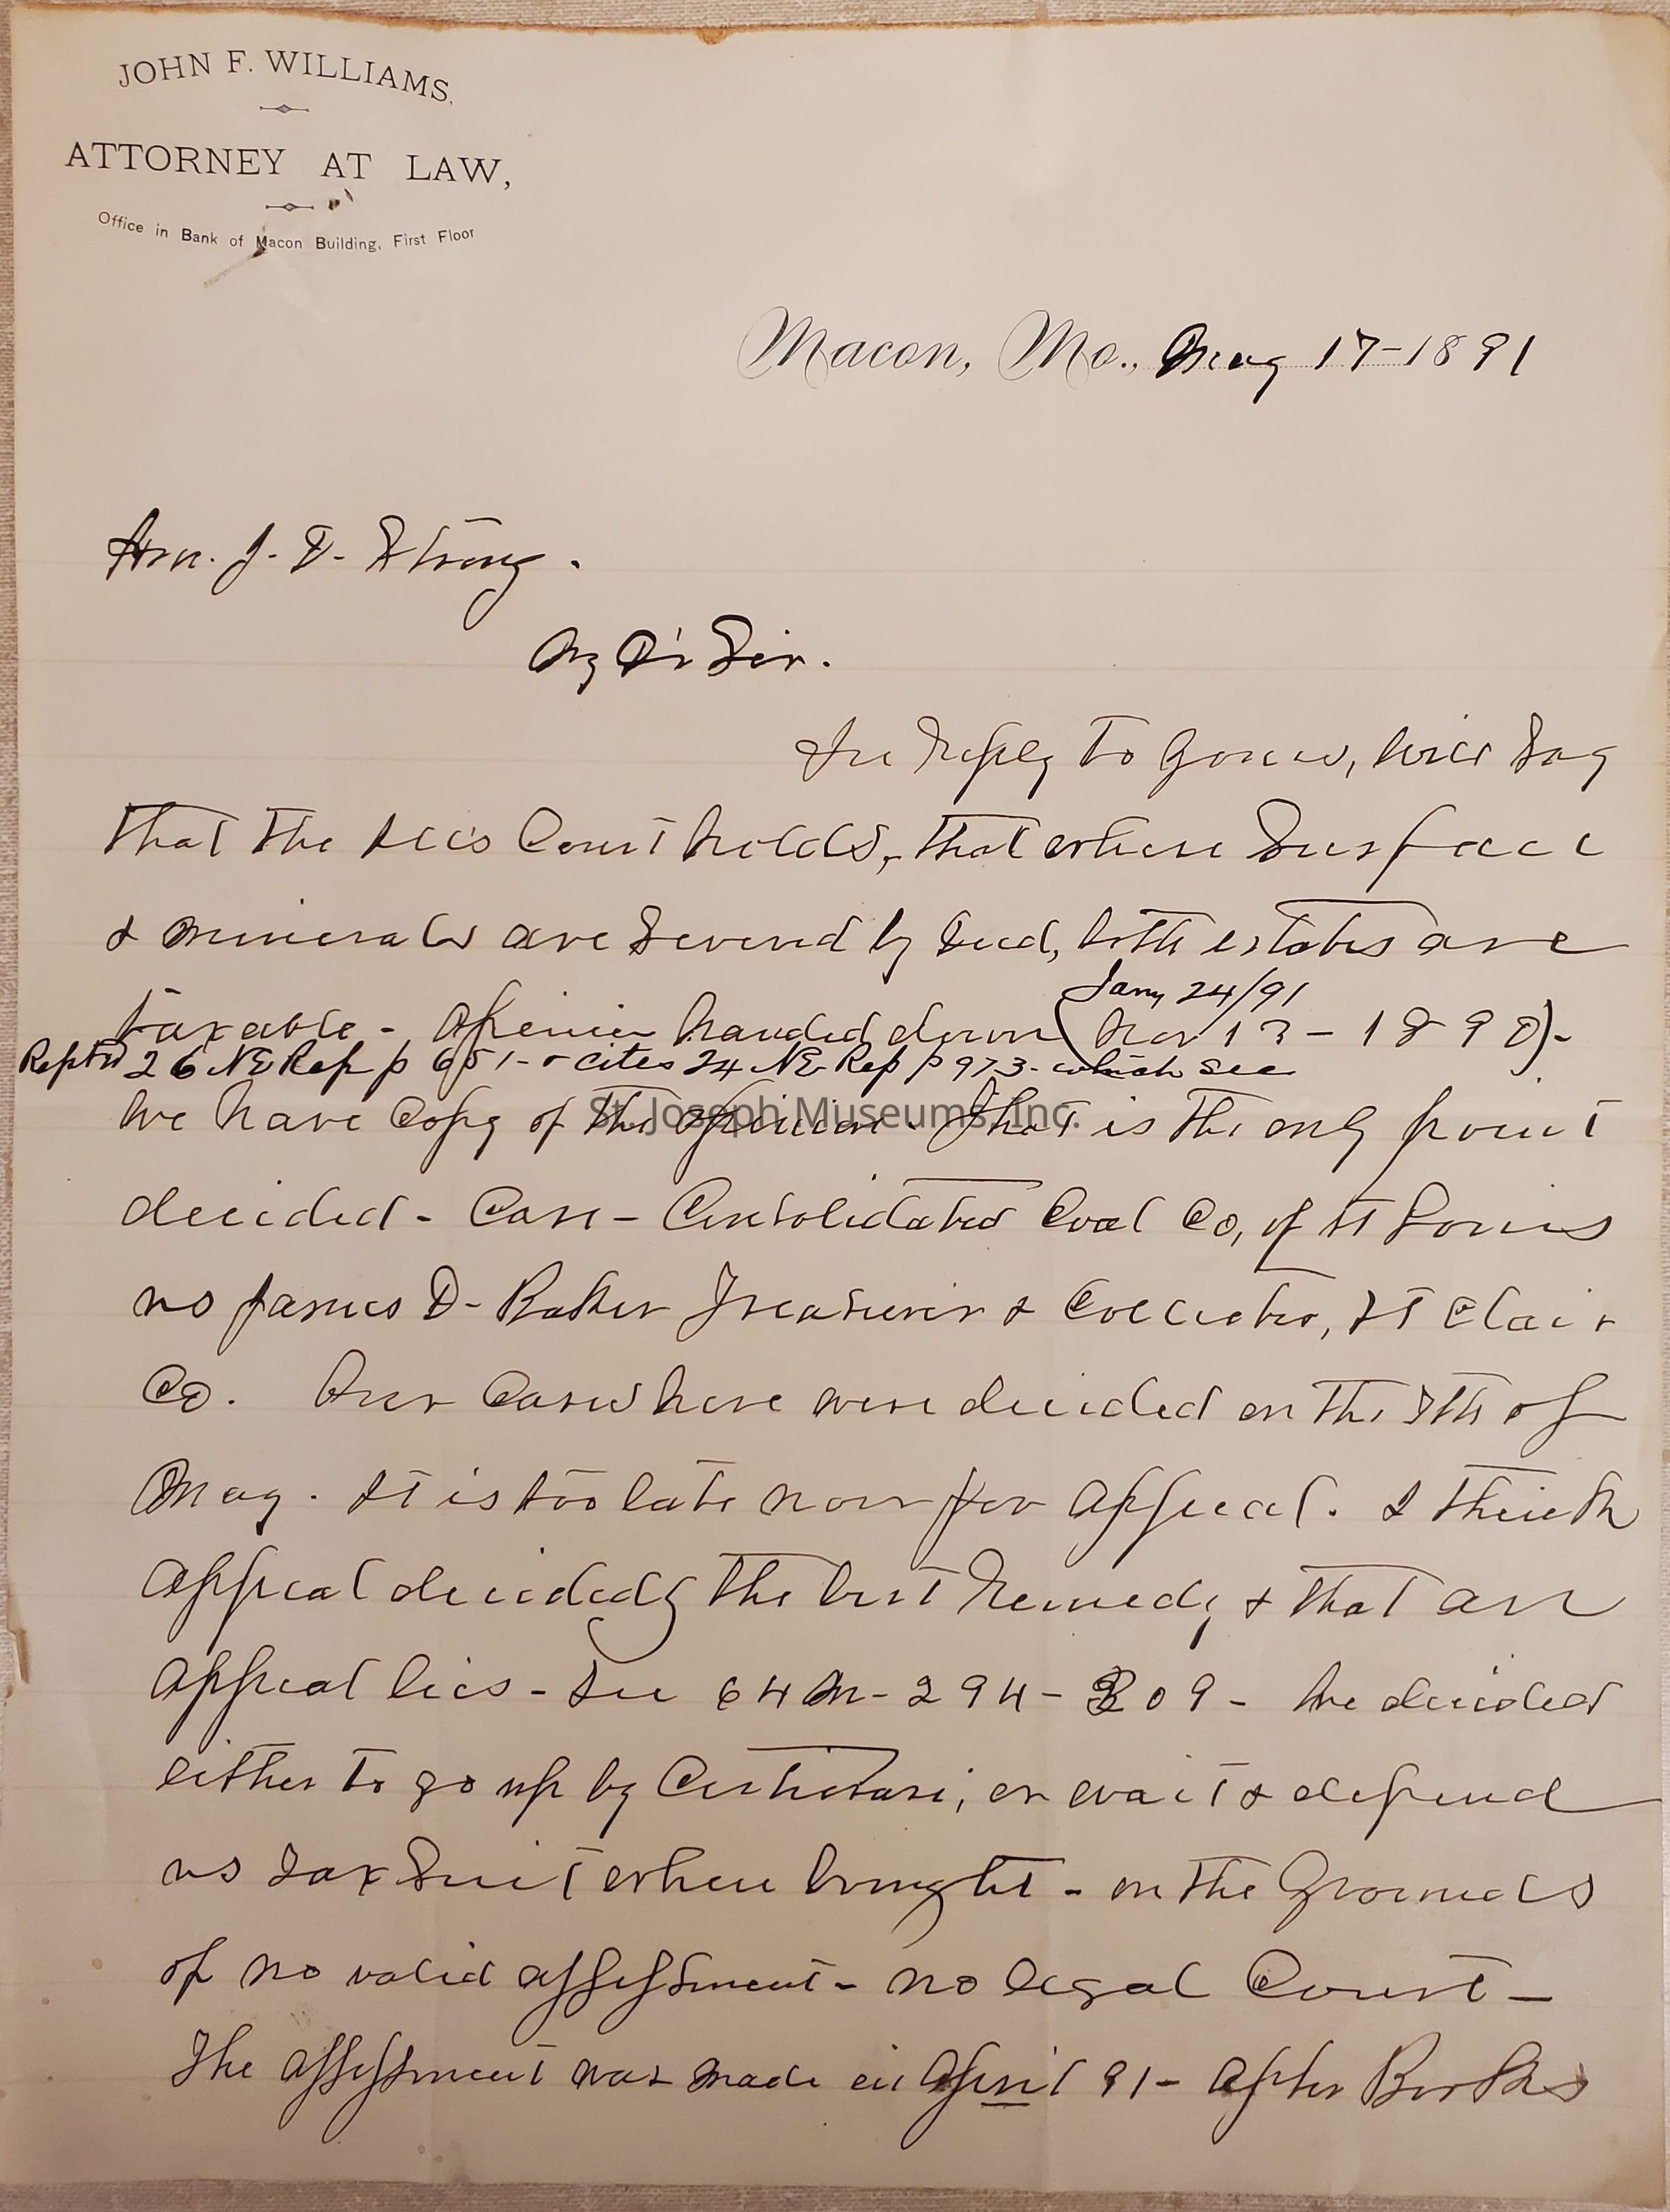 JOHN F. WILLIAMS.
ATTORNEY AT LAW,
Office in Bank of Macon Building, First Floor
Macon, Mo., May 17-1891
Hon. J. D. Strong.
My Dr Sir.
In reply to yours, will say
that the Ills Court holds, that where Surface
& minerals are severed by deed, both estates are
Jany 24/91
taxable - Opinion handed down (Nov 13 - 1890) -
Reptd 26 NE Rep p 651 - & cites 24 NE Rep p 973 - which see
We have copy of the opinion. That is the only point
decided - Case - Consolidated Coal Co, of St Louis
vs James D- Baker Treasurer & Collector, St Clair
Co. Our Cases here were decided on the 7th of
May. It is too late now for appeal. I think
appeal decidedly the best remedy & that an
appeal lies - See 64 M - 294 - 309 - We decided
either to go up by Certiorari, or wait & defend
vs Tax Suit when brought - on the grounds
of no valid assessment - no legal Court -
The assessment was made in April 91 - after Books
St. Joseph Museums, Inc.